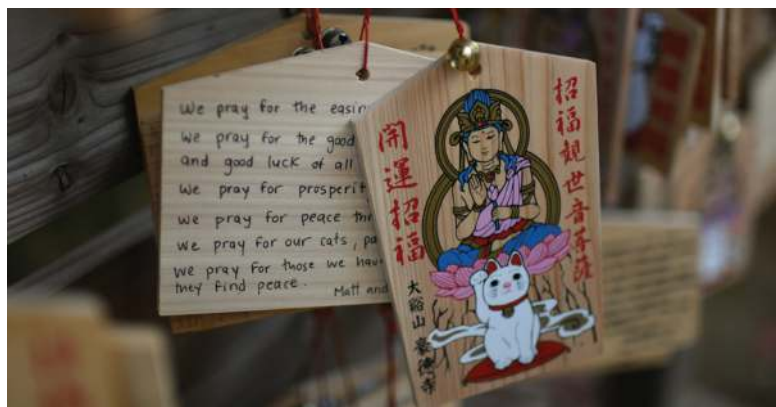 We pray for the easing
We pray for the good
and good luck of all
We pray for prosperit
We pray for peace th
We pray for our cats, pa
We pray for those we have
they find peace.
Matt and
招福観世音菩薩
開運招福
大谿山 豪徳寺